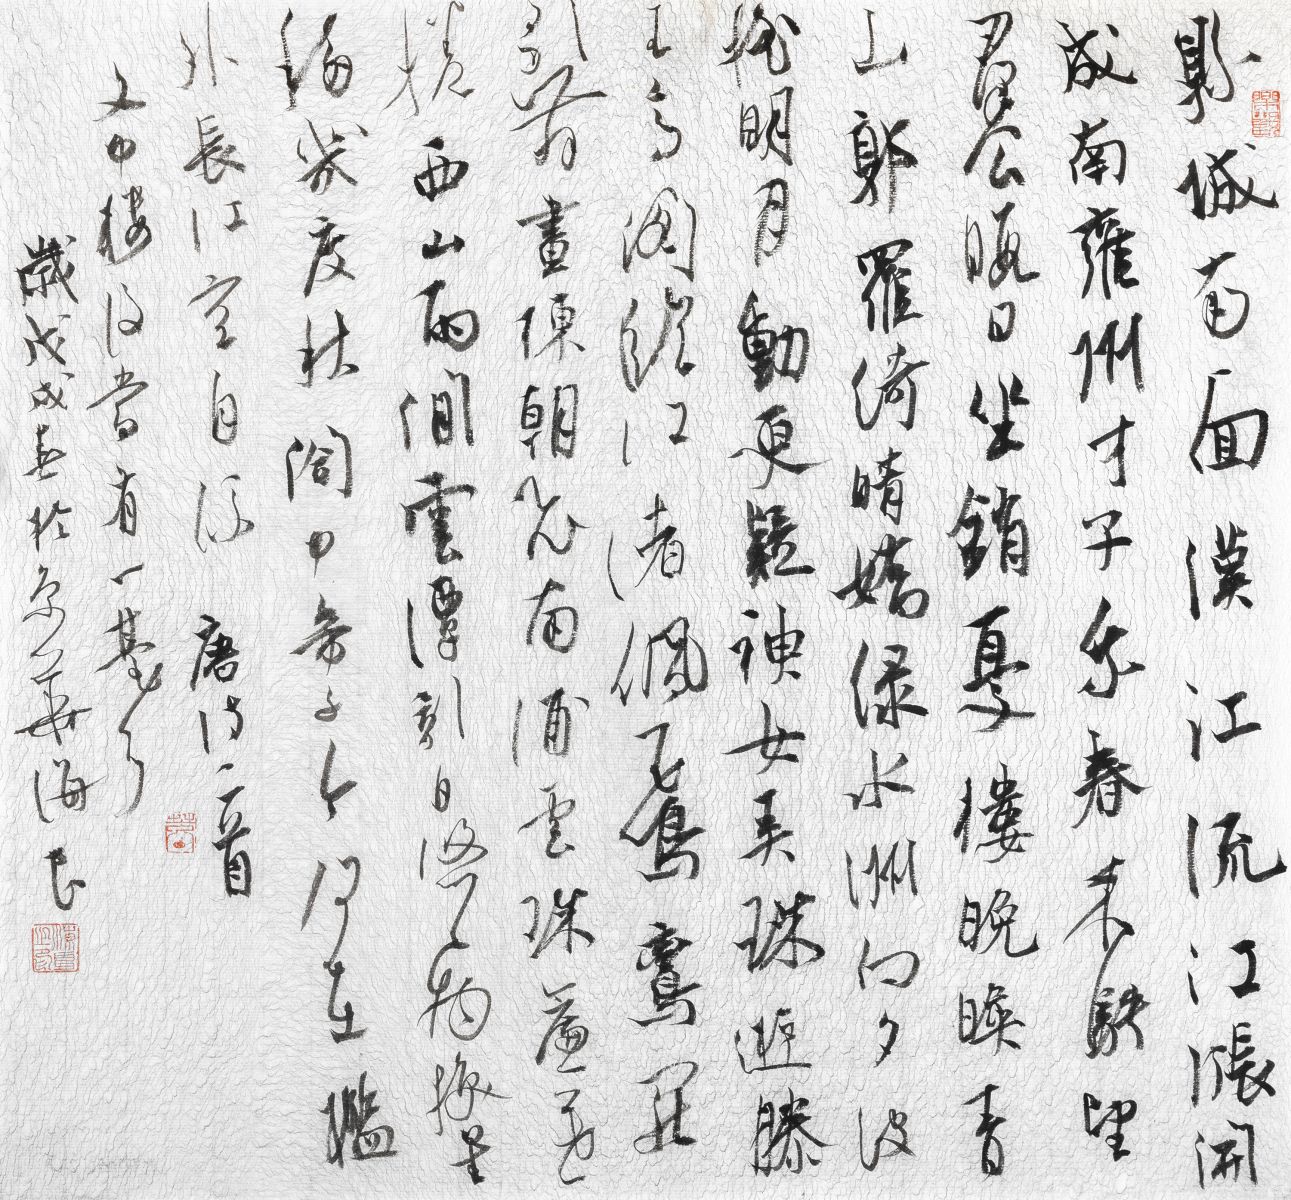 縣城南面漢江流江漲開
成南雍州才子乘春來騁望
群公暇日坐銷憂樓晚映青
山郭羅綺晴嬌綠水洲向夕波
搖明月動更疑神女弄珠遊滕
王高閣臨江渚佩玉鳴鸞罷
歌舞畫棟朝飛南浦雲珠簾暮
捲西山雨閒雲潭影日悠悠物換星
移幾度秋閣中帝子今何在檻
外長江空自流 唐詩二首
文中樓後當有一臺
歲戊戌春於京華海